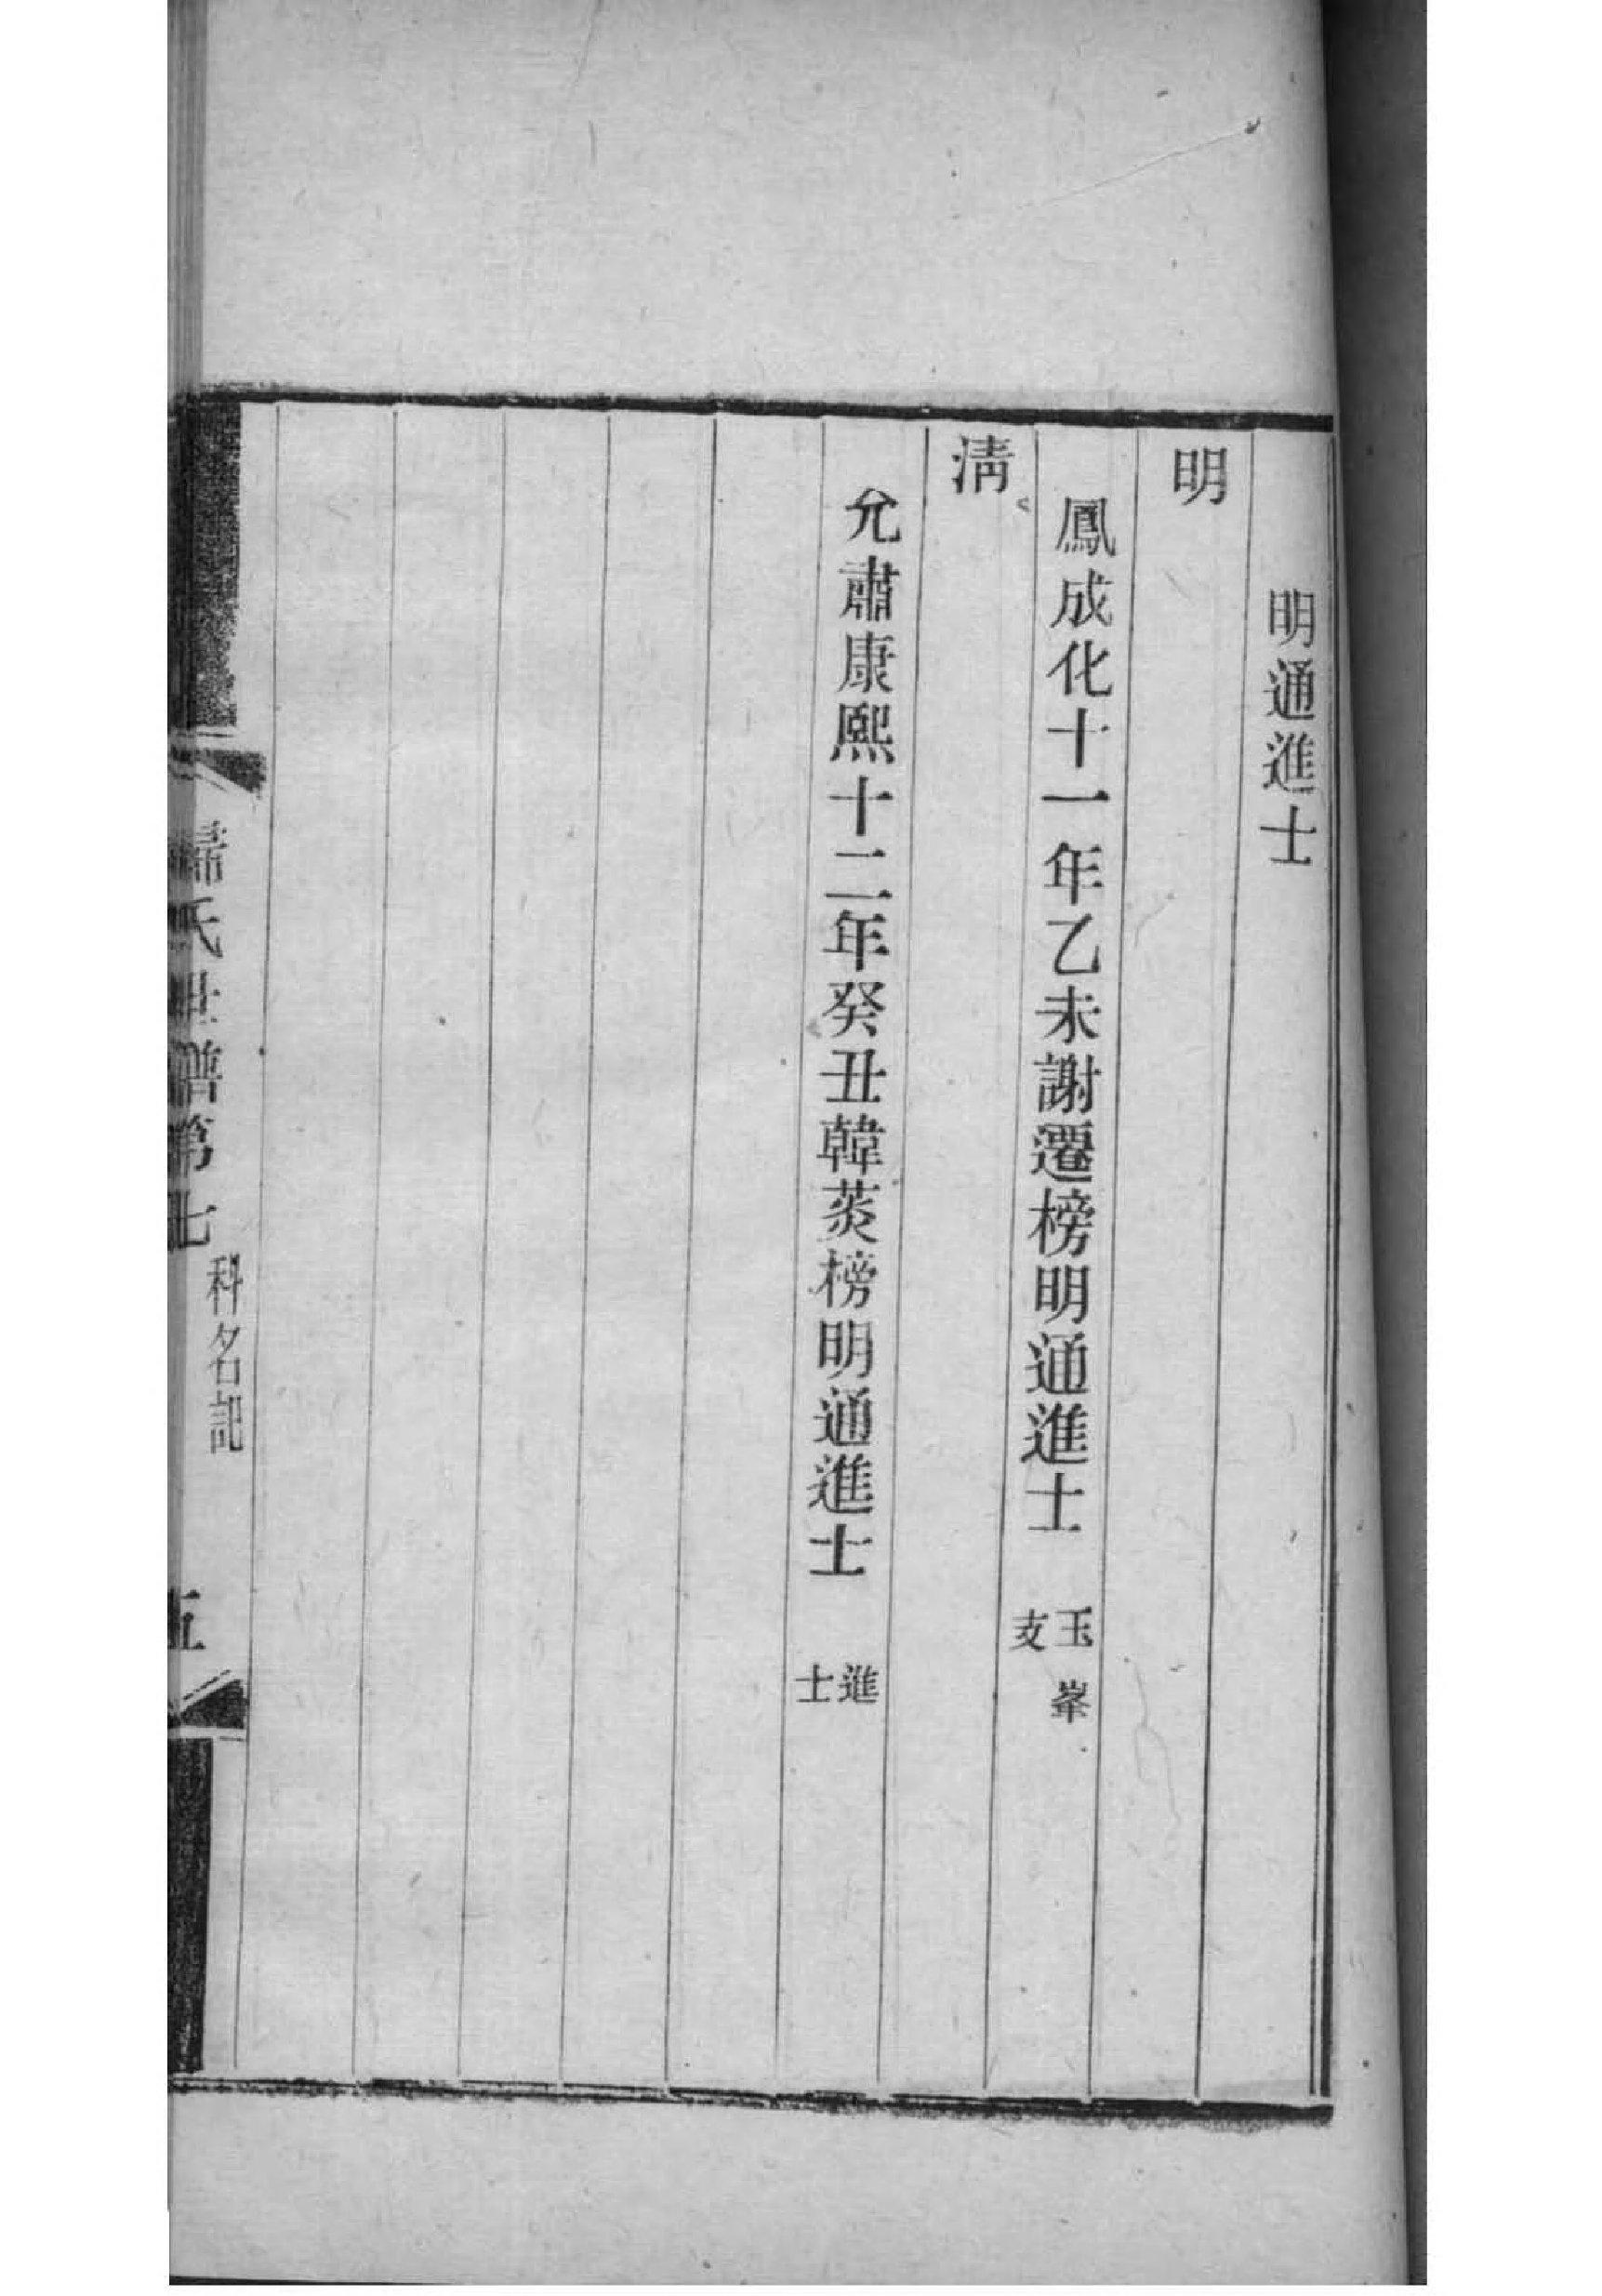 明通進士
明
鳳成化十一年乙未謝遷榜明通進士 玉峯支
清
允肅康熙十二年癸丑韓菼榜明通進士 進士
歸氏世譜第七 科名記 五